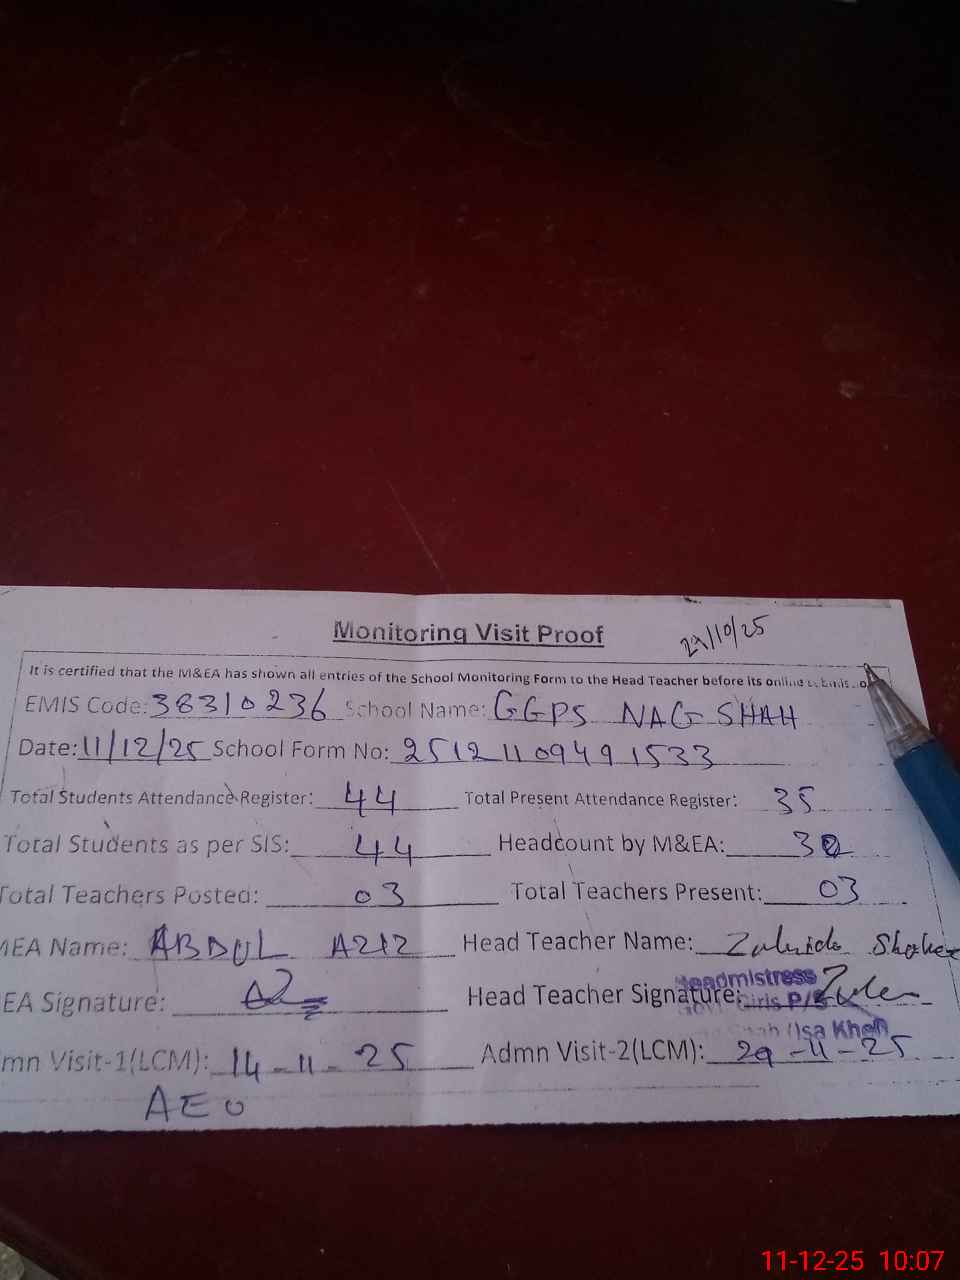 Monitoring Visit Proof
29/10/25
It is certified that the M&EA has shown all entries of the School Monitoring Form to the Head Teacher before its online
EMIS Code: 38310236 School Name: GGPS NAG SHAH
Date: 11/12/25 School Form No: 25121109491533
Total Students Attendance Register: 44 Total Present Attendance Register: 35
Total Students as per SIS: 44 Headcount by M&EA: 30
Total Teachers Posted: 03 Total Teachers Present: 03
MEA Name: ABDUL AZIZ Head Teacher Name:
EA Signature: Head Teacher Signature:
Headmistress
Govt. Girls P/S
Shah (Isa Khel)
mn Visit-1(LCM): 14-11-25 Admn Visit-2(LCM): 29-11-25
AEO
11-12-25 10:07